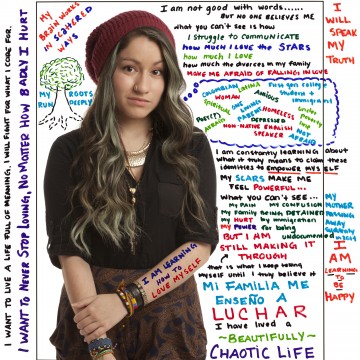 I WANT TO LIVE A LIFE FULL OF MEANING, I WILL FIGHT FOR WHAT I CARE FOR.
I WANT TO NEVER STOP LOVING, NO MATTER HOW BADLY I HURT
My BRAIN WORKS
IN SCATTERED
WAYS
MY ROOTS
RUN DEEPLY
I am not good with words......
But no one believes me
what you can't see is how
I struggle to communicate
how much I LOVE the STARS
how much I LOVE
how much the divorces in my family
MAKE ME AFRAID OF FALLING IN LOVE
COLOMBIAN LATINA First gen college
WOMAN student
ANXIOUS immigrant
Spiritual ONE LIVING HOMELESS under
PARENT poverty
Poet DEPRESSED line
AFRAID NON-NATIVE ENGLISH
SPEAKER
I am constantly learning about
what it truly means to claim these
identities to EMPOWER MYSELF
My SCARS MAKE ME
FEEL POWERFUL...
What you can't see...
My PAIN MY CONFUSION
My Family being DETAINED
My HURT by immigration
My POWER for being
But I AM undocumented
STILL MAKING IT
THROUGH
that is what I keep telling
myself until I truly believe it
I AM LEARNING
HOW TO
LOVE MYSELF
MI FAMILIA ME
ENSEÑO A
LUCHAR
I have lived a
~BEAUTIFULLY~
CHAOTIC LIFE
I
WILL
SPEAK
MY
TRUTH
MY
MOTHER
PASSED
AWAY
SUDDENLY
IN
I
AM
LEARNING
TO BE
HAPPY